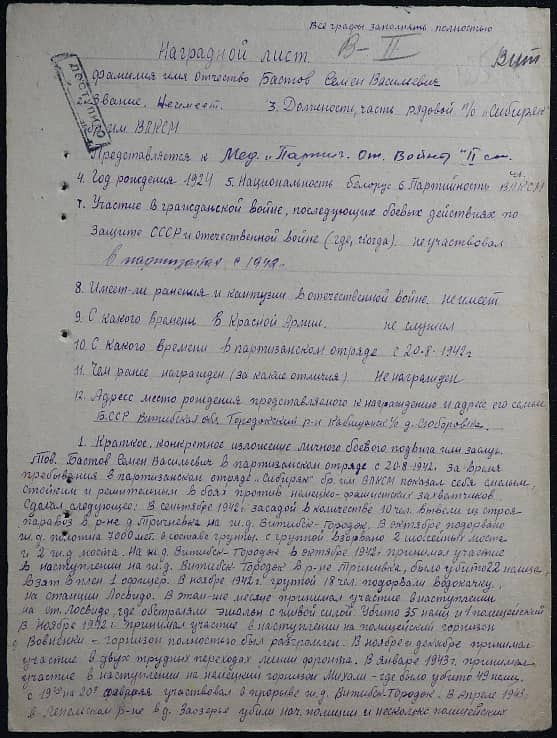 Все графы заполнять полностью
Наградной лист.
В-II
Вит
фамилия имя отчество Бастов Семен Васильевич
звание. Неимеет. 3. Должность, часть рядовой п/о "Сибиряк"
им. ВЛКСМ
Представляется к Мед. "Партиз. От. Войны" II ст.
4. Год рождения 1924 5. Национальность белорус 6. Партийность ВЛКСМ
7. Участие в гражданской войне, последующих боевых действиях по
защите СССР и отечественной войне (где, когда). не участвовал
В партизанах с 1942г.
8. Имеет-ли ранения и контузии в отечественной войне. не имеет
9. С какого времени в Красной Армии. не служил
10. С какого времени в партизанском отряде с 20-8-1942г
11. Чем ранее награжден (за какие отличия) Не награжден
12. Адресс место рождения представляемого к награждению и адрес его семьи
БССР Витибская обл. Городокский р-н с/с д. Слоборовка.
1. Краткое, конкретное изложение личного боевого подвига или заслуг.
Тов. Бастов Семен Васильевич в партизанском отряде с 20.8.1942г. За время
пребывания в партизанском отряде "Сибиряк" бр. им ВЛКСМ показал себя смелым,
стойким и решительным в боях против немецко-фашистских захватчиков.
Сделал следующее: В сентябре 1942г. засадой в количестве 10 чел. вывели из строя
паравоз в р-не д. на ж.д. Витибск-Городок. В октябре подорвано
ж.д. полотна 7000 мет. в составе группы. с группой взорвано 2 шоссейных моста
и 2 ж.д. моста. На ж.д Витибск-Городок в октябре 1942г принимал участие
в наступлении на ж.д. Витибск Городок в р-не было убито 22 полица
взят в плен 1 офицер. В ноябре 1942г группой 18 чел. подорвали водокачку,
на станции Лосвидо. В этом-же месяце принимал участие в наступлении
на ст. Лосвидо, где обстреляли эшалон с живой силой убито 35 нац и 4 полицейских
В Ноябре 1942г принимал участие в наступлении на полицейский горнизон
Вовненки - горнизон полностью был разгромлен. В ноябре и декабре принимал
участие в двух трудных переходах линии фронта. В Январе 1943г. принимал
участие в наступлении на немецкий горнизон Михали - где было убито 49 нему.
с 19го на 20е февраля участвовал в прорыве ж.д. Витибск-Городок. В Апреле 1943
в Лепельском р-не в д. Заозерье убили нач. полиции и несколько полицейских